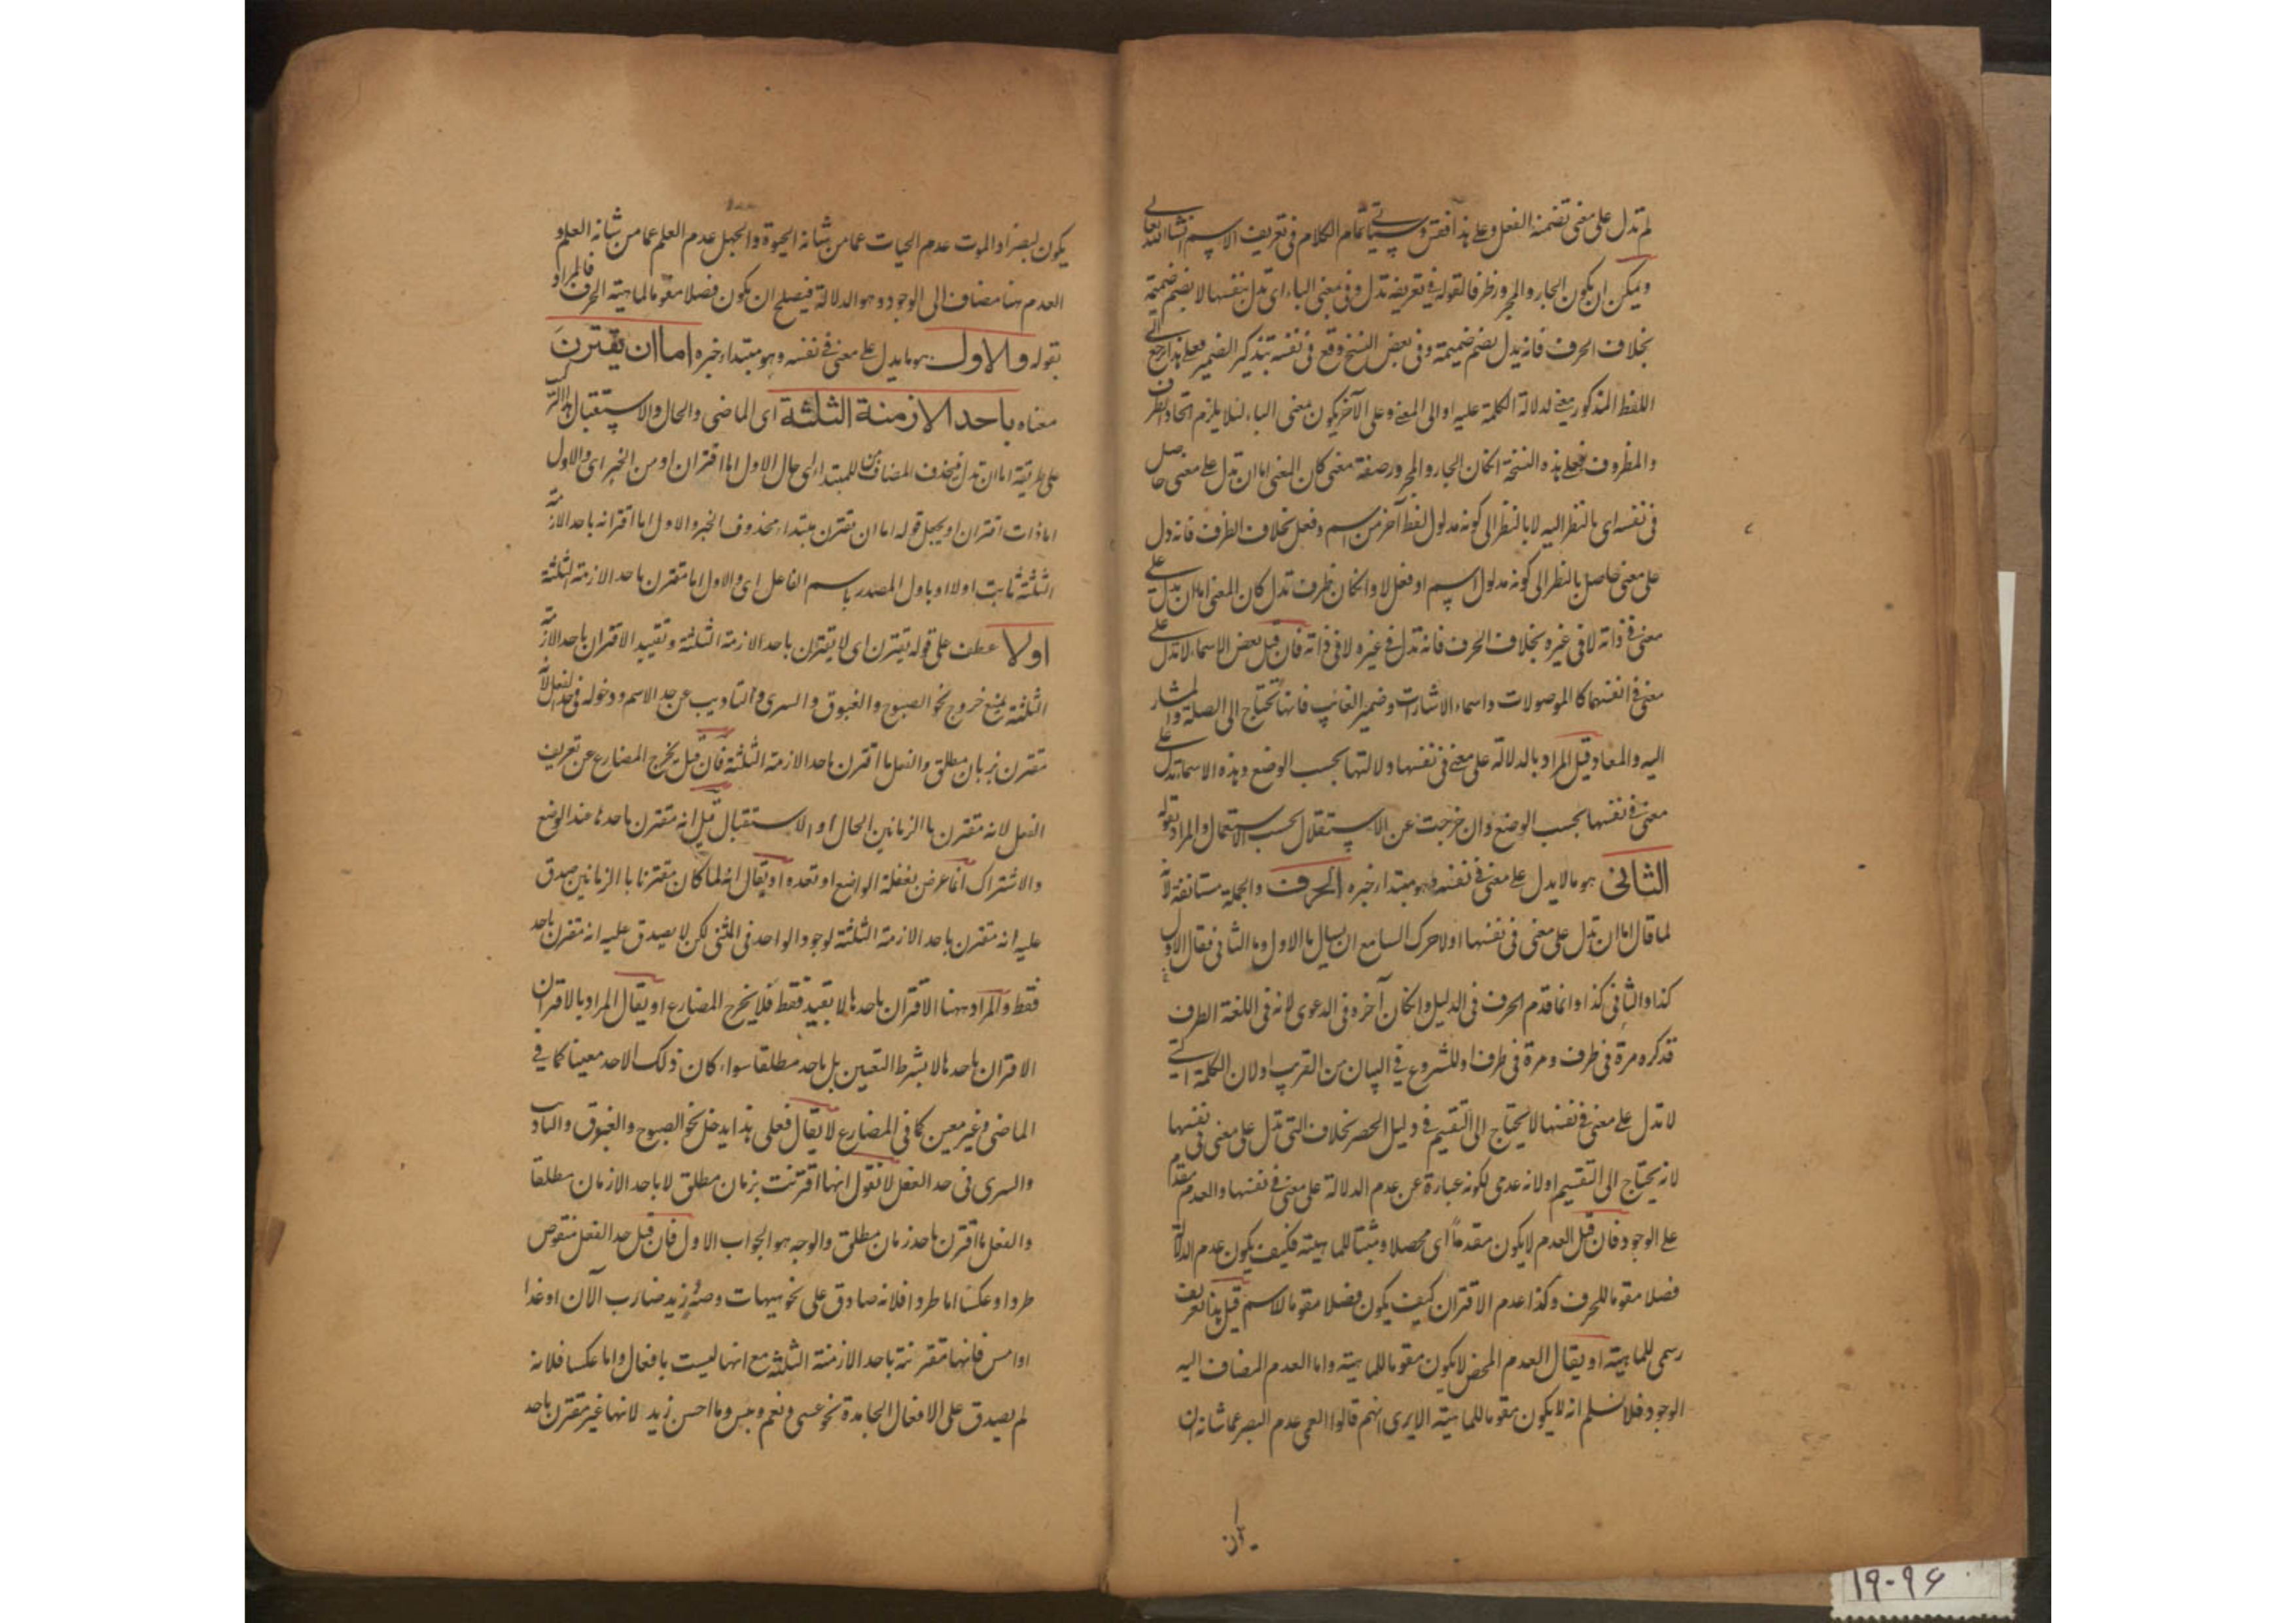 لم تدل على معنى تضمنه الفعل وعلى هذا فقس وسيأتى تمام الكلام فى تعريف الاسم انشاءالله تعالى
ويمكن ان يكون الجار والمجرور ظرفا لقوله فى تعريفه تدل وفى بمعنى الباء اى تدل بنفسها لا بضم ضميمة
بخلاف الحرف فانه يدل بضم ضميمة وفى بعض النسخ وقع فى نفسه بتذكير الضمير فعلى هذا راجع الى
اللفظ المذكور معنى لدلالة الكلمة عليه او الى المعنى وعلى الآخر يكون بمعنى الباء لئلا يلزم اتحاد الظرف
والمظروف فعلى هذه النسخة انكان الجار والمجرور صفة معنى كان المعنى اما ان تدل على معنى حاصل
فى نفسه اى بالنظر اليه لا بالنظر الى كونه مدلول لفظ آخر من اسم وفعل بخلاف الظرف فانه دل
على معنى حاصل بالنظر الى كونه مدلول اسم او فعل لا وانكان ظرف تدل كان المعنى اما ان يدل على
معنى فى ذاته لا فى غيره بخلاف الحرف فانه تدل فى غيره لا فى ذاته فان قيل بعض الاسماء لا تدل على
معنى فى انفسها كالموصولات واسماء الاشارات وضمير الغائب فانها تحتاج الى الصلة والمشار
اليه والمعاد قيل المراد بالدلالة على معنى فى نفسها دلالتها بحسب الوضع وهذه الاسماء تدل على
معنى فى نفسها بحسب الوضع وان خرجت عن الاستقلال بحسب الاستعمال والمراد بقوله
الثانى هو ما لا يدل على معنى فى نفسه وهو مبتدا خبره الحرف والجملة مستانفة لانه
لما قال اما ان تدل على معنى فى نفسها اولا حرك السامع ان يسأل ما الاول وما الثانى فقال الاول
كذا والثانى كذا وانما قدم الحرف فى الدليل وانكان آخره فى الدعوى لانه فى اللغة الطرف
فذكره مرة فى طرف ومرة فى طرف او للشروع فى البيان من القرب او لان الكلمة التى
لا تدل على معنى فى نفسها لا يحتاج الى التقسيم فى دليل الحصر بخلاف التى تدل على معنى فى نفسها
لانه يحتاج الى التقسيم او لانه عدمى لكونه عبارة عن عدم الدلالة على معنى فى نفسها والعدم مقدم
على الوجود فان قيل العدم لا يكون مقدماً اى محصلا ومثبتا للماهية فكيف يكون عدم الدلالة
فصلا مقوما للحرف وكذا عدم الاقتران كيف يكون فصلا مقوما للاسم قيل هذا تعريف
رسمى للماهية او يقال العدم المحض لا يكون مقوما للماهية واما العدم المضاف اليه
الوجود فلا نسلم انه لا يكون مقوما للماهية الا يرى انهم قالوا العمى عدم البصر عما شانه ان
يكون بصيرا والموت عدم الحيات عما من شانه الحيوة والجهل عدم العلم عما من شانه العلم و
العدم هنا مضاف الى الوجود وهو الدلالة فيصلح ان يكون فصلا مقوما لماهية الحرف فالمراد
بقوله والاول هو ما يدل على معنى فى نفسه وهو مبتداء خبره اما ان يقترن
معناه باحد الازمنة الثلثة اى الماضى والحال والاستقبال
على طريقة اما ان تدل فيحذف المضاف من المبتداء اى حال الاول اما اقتران او من الخبر اى والاول
اما ذات اقتران او يجعل قوله اما ان تقترن مبتداء محذوف الخبر والاول اما اقترانه باحد الازمنة
الثلثة ثابت اولا او باول المصدر باسم الفاعل اى والاول اما مقترن باحد الازمنة الثلثة
اولا عطف على قوله يقترن اى لا يقترن باحد الازمنة الثلثة وتقييد الاقتران باحد الازمنة
الثلثة يمنع خروج نحو الصبوح والغبوق والسرى والتاويب عن حد الاسم ودخوله فى حد الفعل لانه
مقترن بزمان مطلق والفعل ما اقترن باحد الازمنة الثلثة فان قيل يخرج المضارع عن تعريف
الفعل لانه مقترن بالزمانين الحال او الاستقبال قيل انه مقترن باحدهما عند الوضع
والاشتراك انما عرض بغفلة الواضع او تعدده او يقال انه لما كان مقترنا بالزمانين صدق
عليه انه مقترن باحد الازمنة الثلثة لوجود الواحد فى المثنى لكن لا يصدق عليه انه مقترن باحد
فقط والمراد ههنا الاقتران باحدها لا بقيد فقط فلا يخرج المضارع او يقال المراد بالاقتران
الاقتران باحدها لا بشرط التعين بل باحد مطلقا سواء كان ذلك الاحد معينا كما فى
الماضى وغير معين كما فى المضارع لا يقال فعلى هذا يدخل نحو الصبوح والغبوق والتاويب
والسرى فى حد الفعل لا نقول انها اقترنت بزمان مطلق لا باحد الازمان مطلقا
والفعل ما اقترن باحد زمان مطلق والوجه هو الجواب الاول فان قيل حد الفعل منقوض
طردا وعكسا اما طردا فلانه صادق على نحو هيهات وصه وزيد ضارب الآن او غدا
او امس فانها مقترنة باحد الازمنة الثلثة مع انها ليست بافعال واما عكسا فلانه
لم يصدق على الافعال الجامدة نحو عسى ونعم وبئس وما احسن زيد لانها غير مقترن باحد
۱۹-۹۶